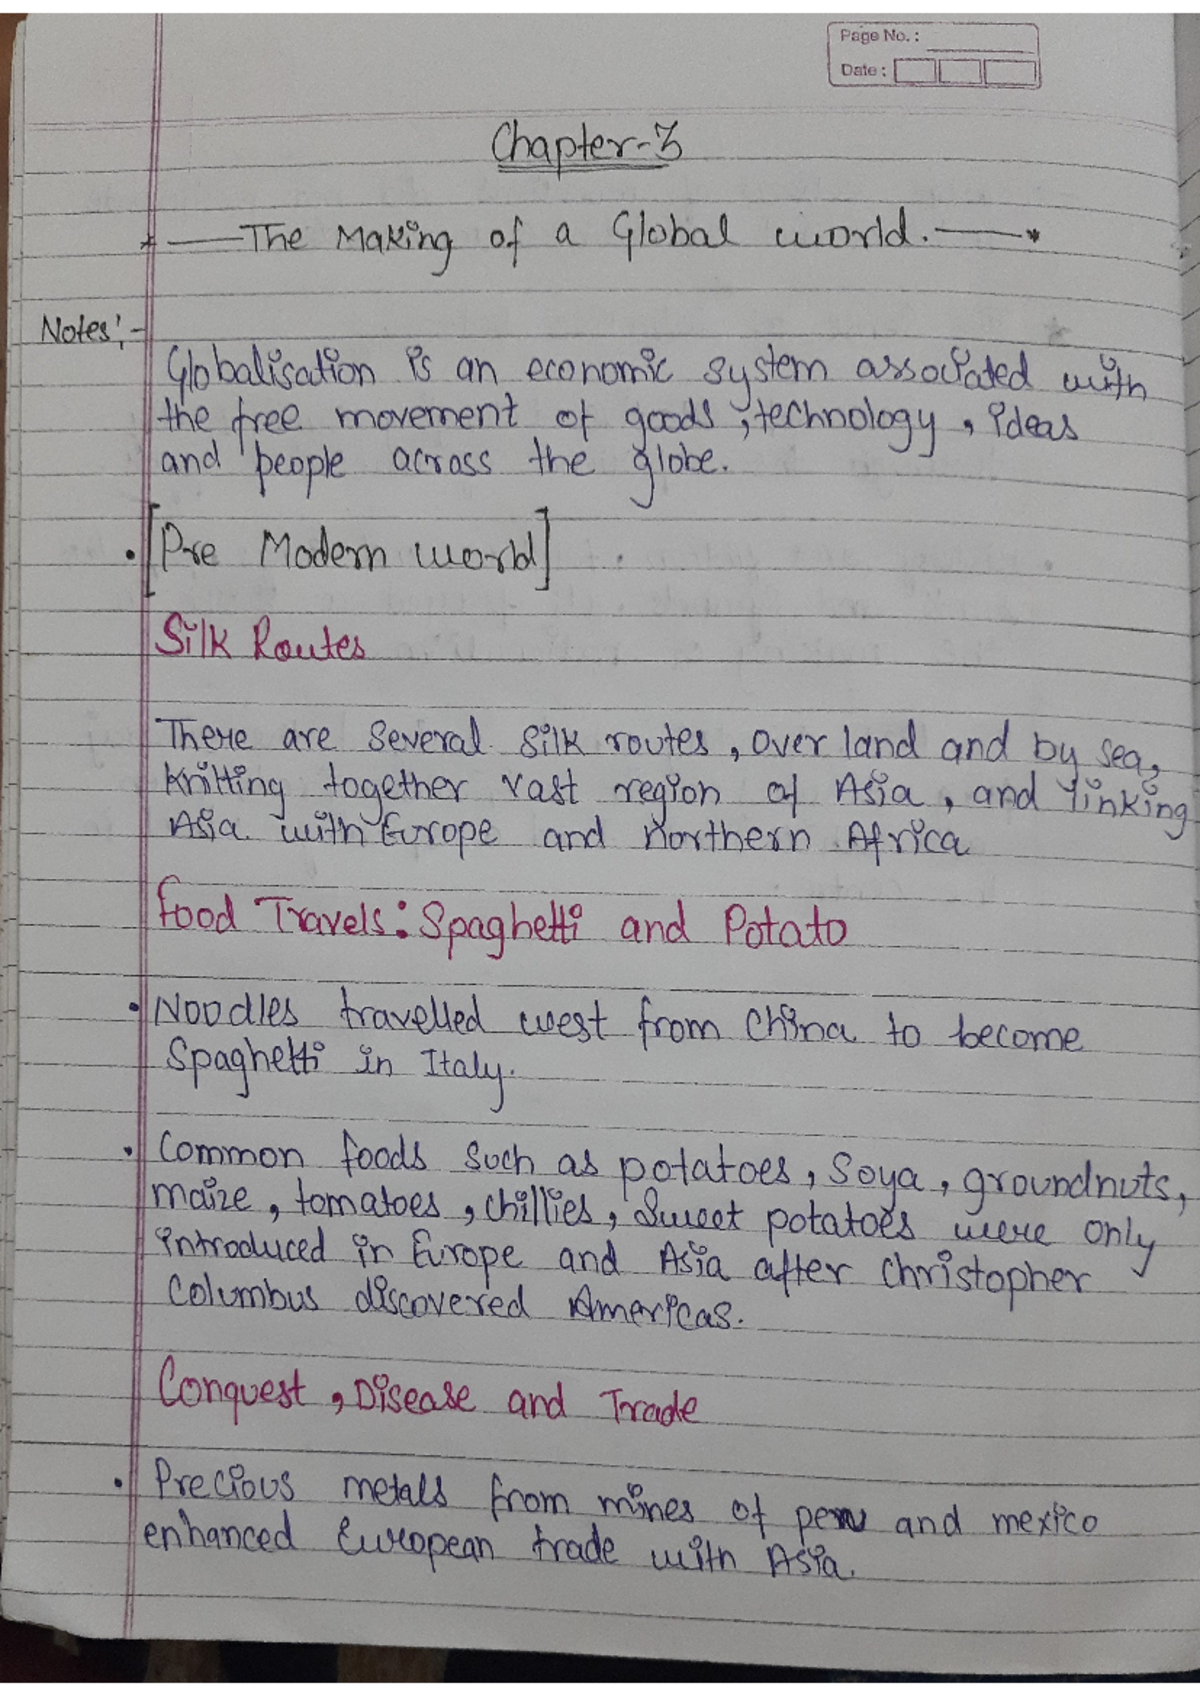 Page No. :
Date :
Chapter-3
The Making of a Global world.
Notes:-
Globalisation is an economic system associated with
the free movement of goods, technology, ideas
and people across the globe.
• [Pre Modern world]
Silk Routes
There are several silk routes, over land and by sea,
knitting together vast region of Asia, and linking
Asia with Europe and Northern Africa
Food Travels: Spaghetti and Potato
• Noodles travelled west from China to become
Spaghetti in Italy.
• Common foods such as potatoes, Soya, groundnuts,
maize, tomatoes, chillies, Sweet potatoes were only
introduced in Europe and Asia after christopher
Columbus discovered Americas.
Conquest, Disease and Trade
• Precious metals from mines of peru and mexico
enhanced European trade with Asia.